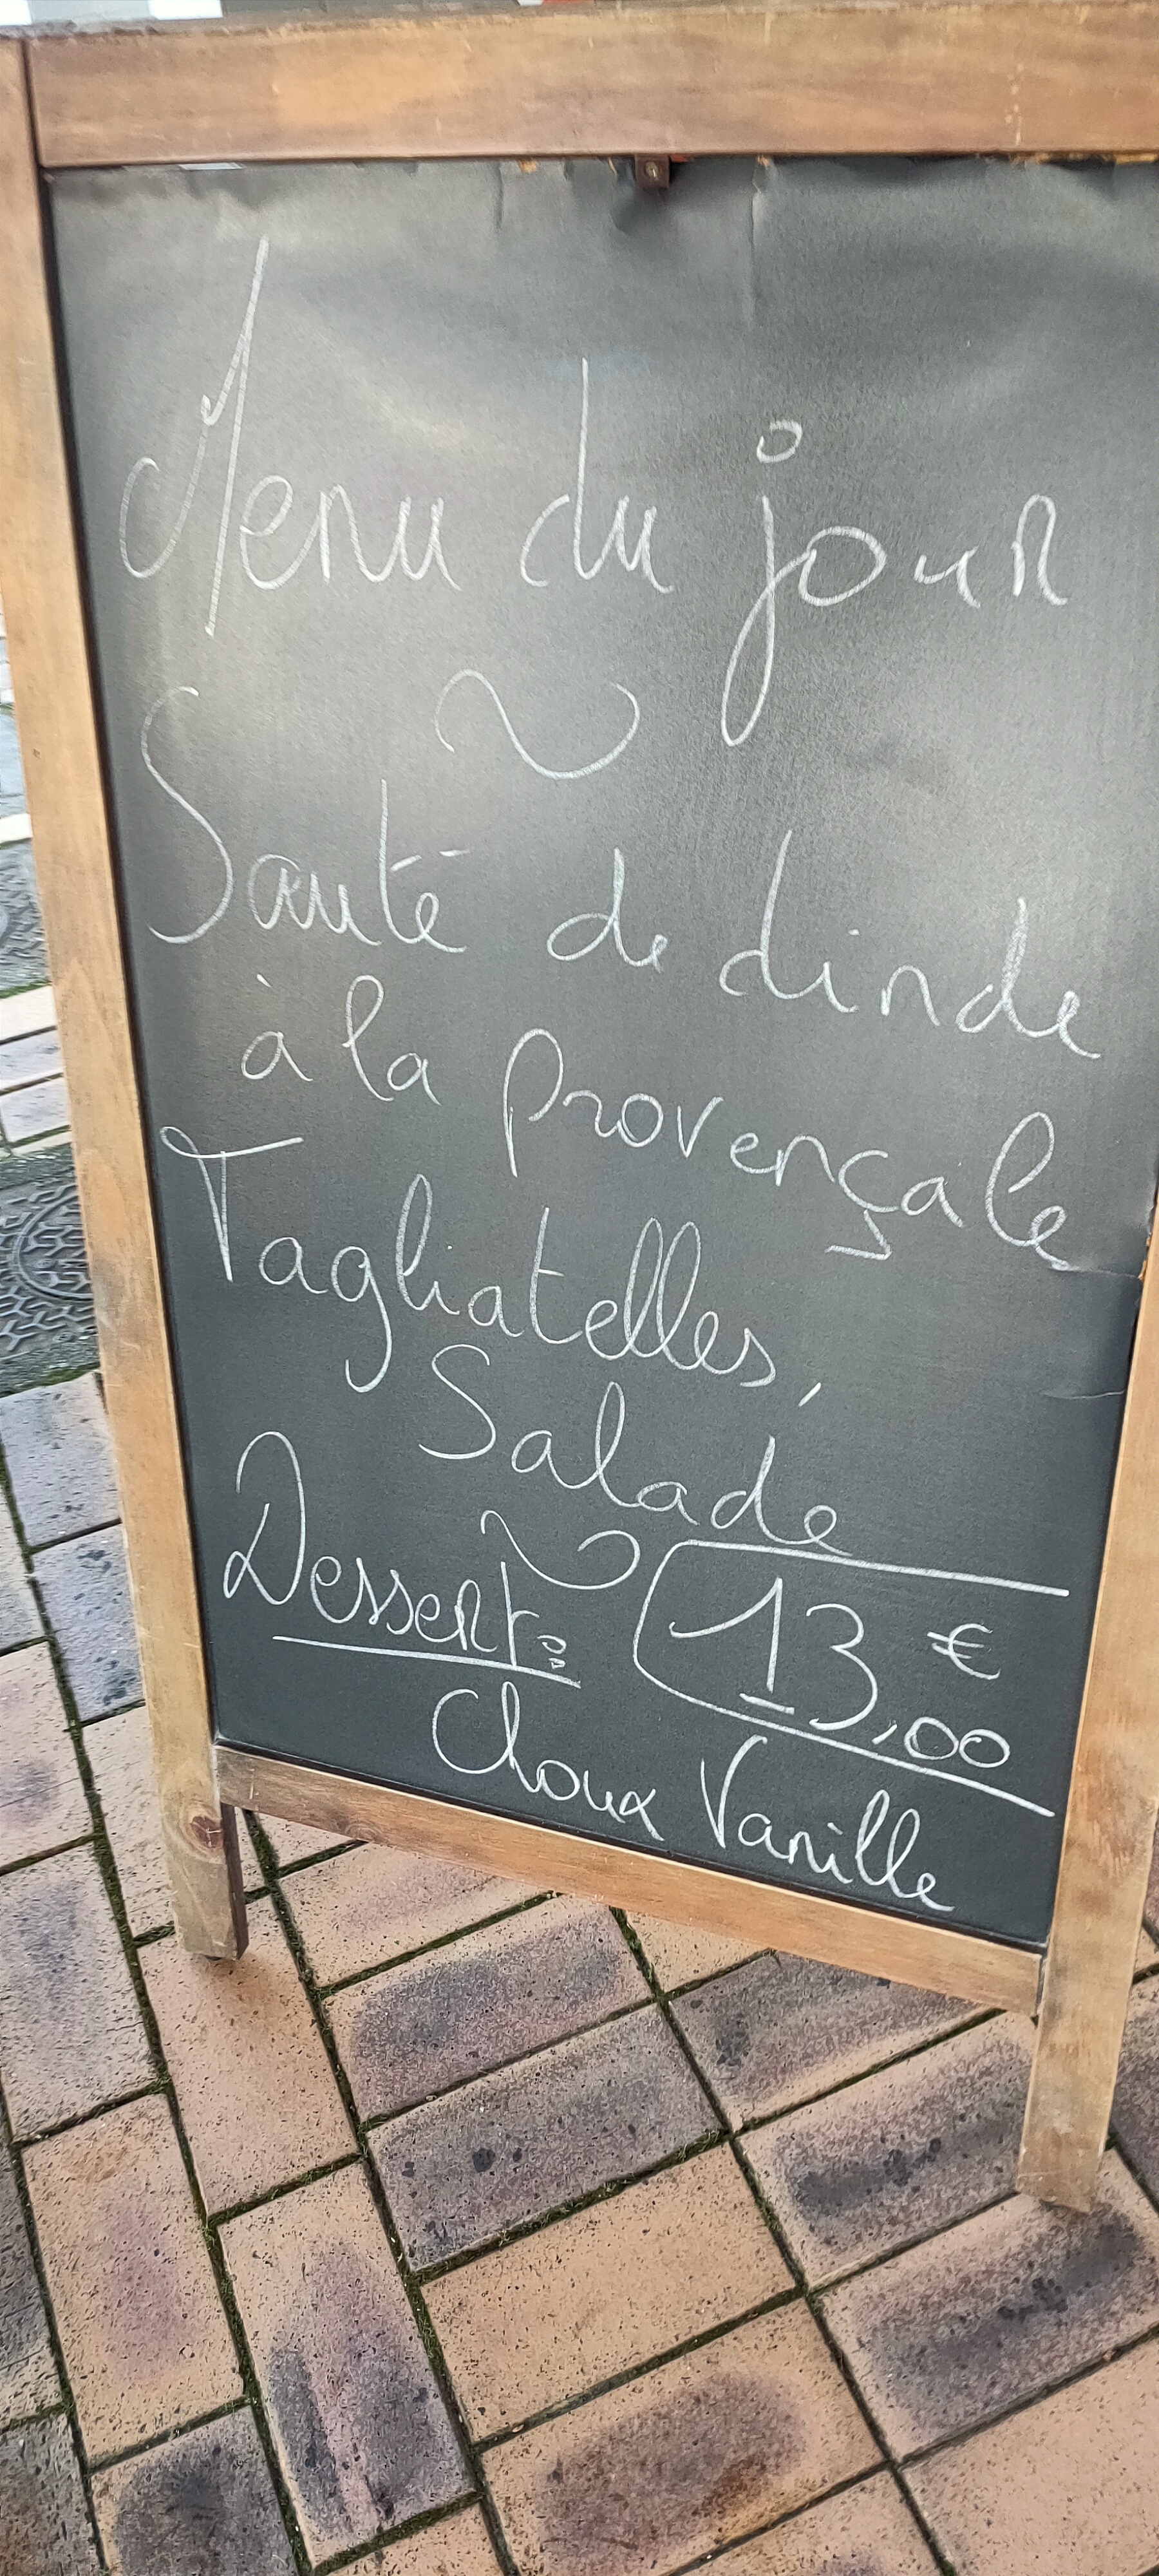 Menu du jour
Sauté de dinde
à la Provençale
Tagliatelles,
Salade
Dessert:
13,00 €
Choux Vanille